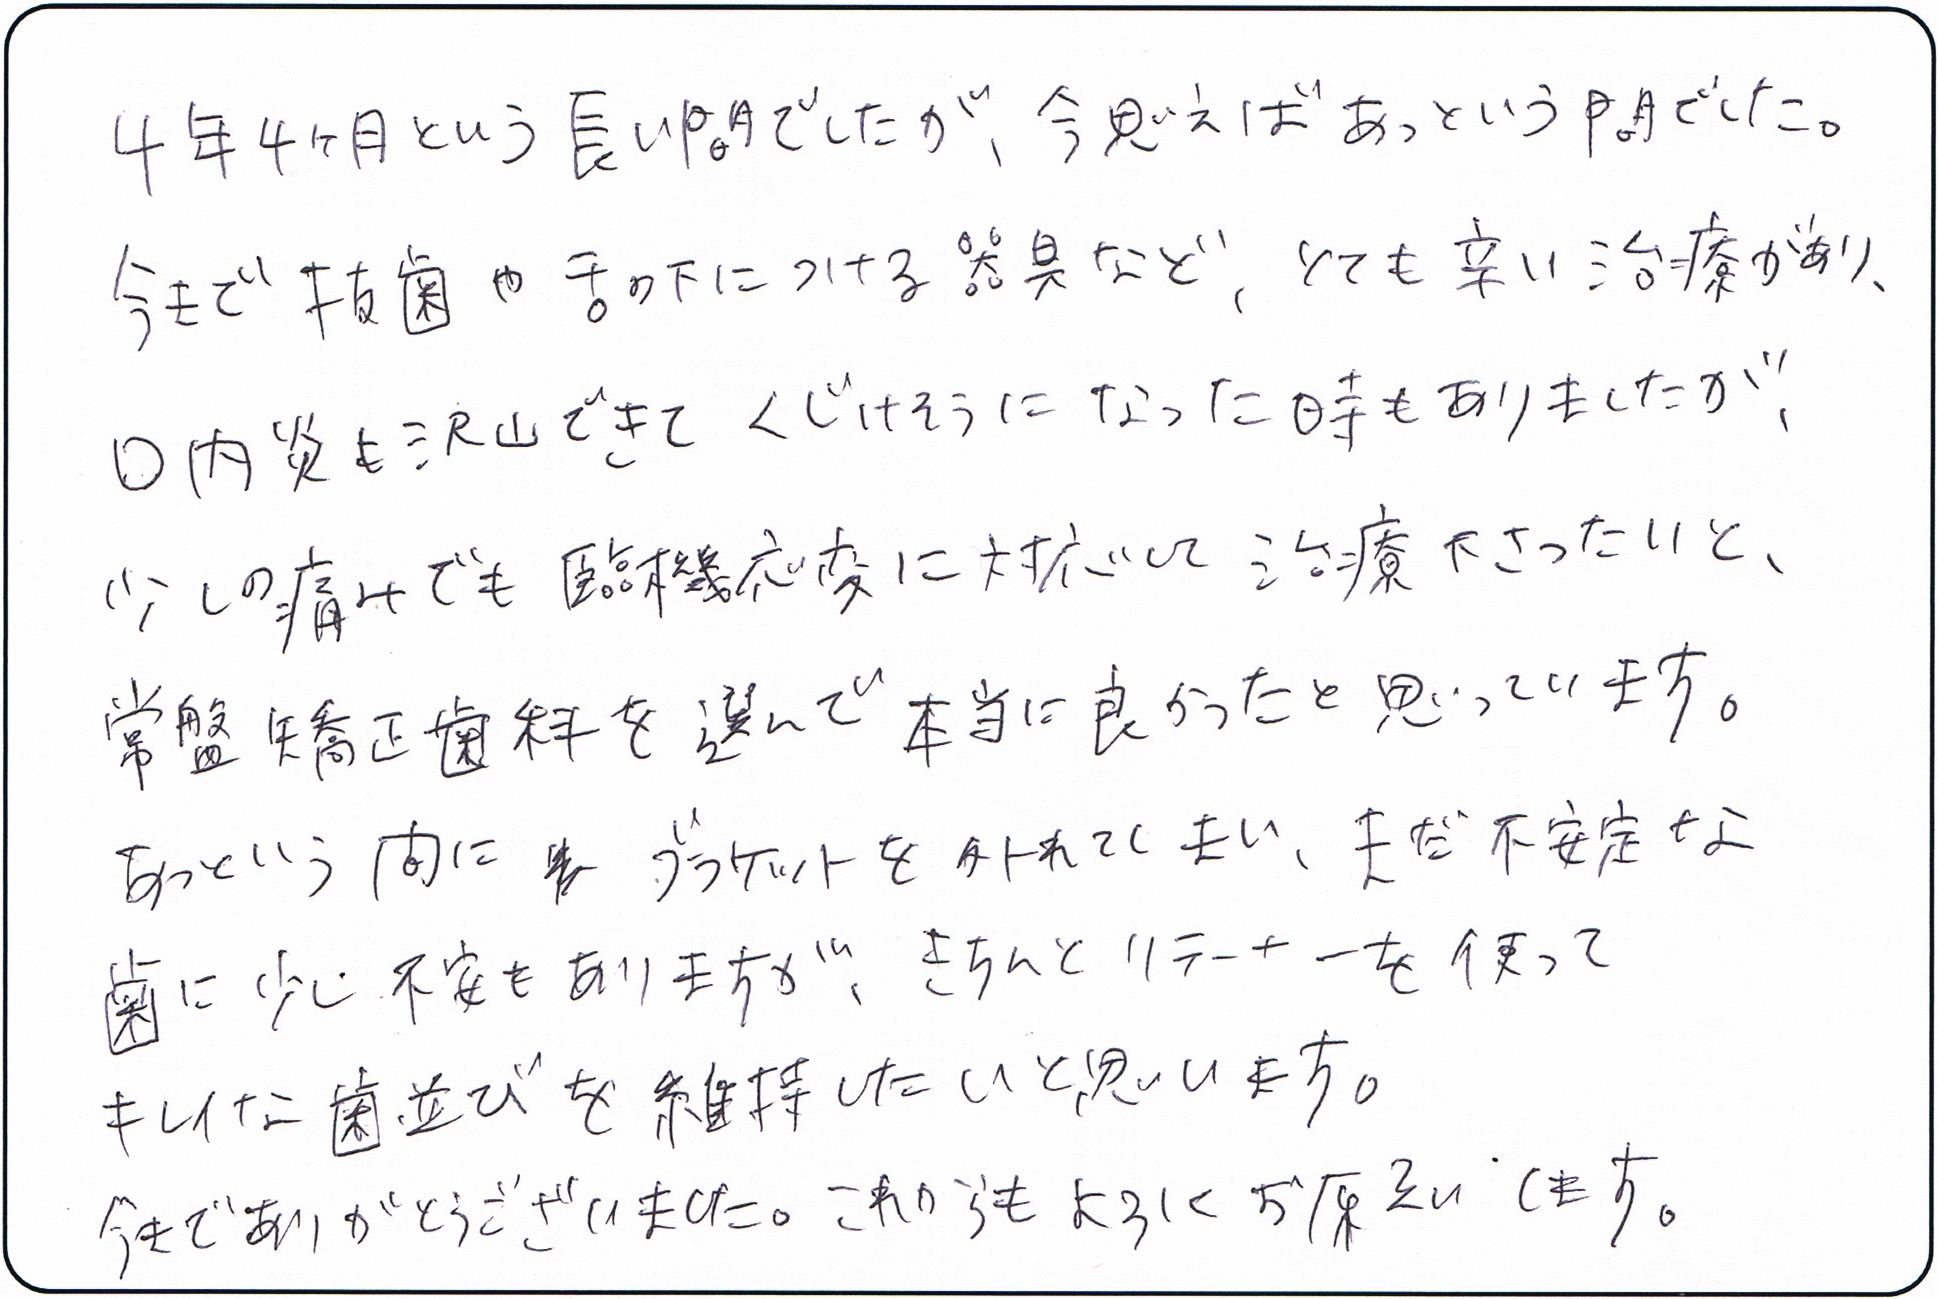 4年4ヶ月という長い間でしたが、今思えばあっという間でした。
今まで抜歯や舌の下につける器具など、とても辛い治療があり、
口内炎も沢山できてくじけそうになった時もありましたが、
少しの痛みでも臨機応変に対応して治療下さったいと、
常盤矯正歯科を選んで本当に良かったと思っています。
あっという間にブラケットを外れてしまい、まだ不安定な
歯に少し不安もありますが、きちんとリテーナーを使って
キレイな歯並びを維持したいと思います。
今までありがとうございました。これからもよろしくお願いします。